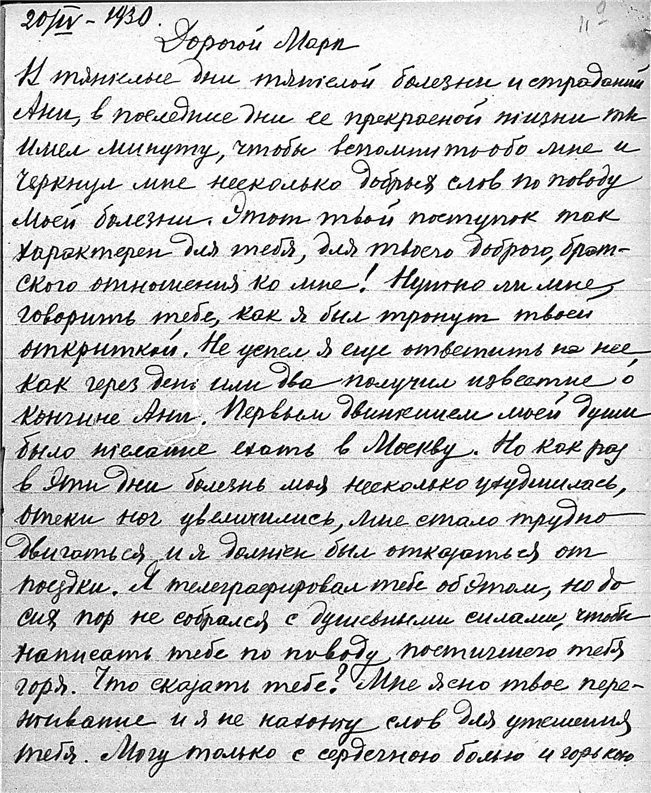 20/IV - 1930.
Дорогой Марк
В тяжелые дни тяжелой болезни и страданий
Ани, в последние дни ее прекрасной жизни ты
имел минуту, чтобы вспомнить обо мне и
черкнул мне несколько добрых слов по поводу
моей болезни. Этот твой поступок так
характерен для тебя, для твоего доброго, брат-
ского отношения ко мне! Нужно ли мне
говорить тебе, как я был тронут твоей
открыткой. Не успел я еще ответить на нее,
как через день или два получил известие о
кончине Ани. Первым движением моей души
было желание ехать в Москву. Но как раз
в эти дни болезнь моя несколько ухудшилась,
отеки ног увеличились, мне стало трудно
двигаться и я должен был отказаться от
поездки. Я телеграфировал тебе об этом, но до
сих пор не собрался с душевными силами, чтобы
написать тебе по поводу постигшего тебя
горя. Что сказать тебе? Мне ясно твое пере-
живание и я не нахожу слов для утешения
тебя. Могу только с сердечною болью и горькою